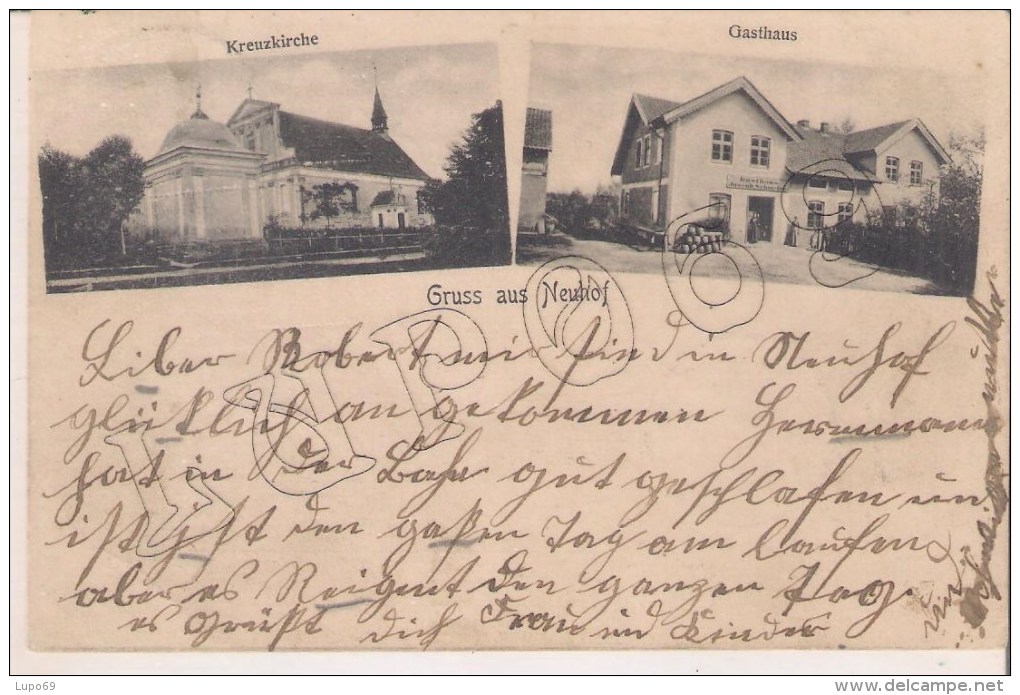 Kreuzkirche
Gasthaus
Gasthaus
Gruss aus Neuhof
Liber Robert mir sind in Neuhof
glüklich an gekommen Hermann
hat in der Bahn gut geschlafen un
ist jetst den gaßen Tag am laufen
aber es Reignt den ganzen Tag.
es Grüßt dich Frau und Kinder
LUPO69
Lupo69
www.delcampe.net